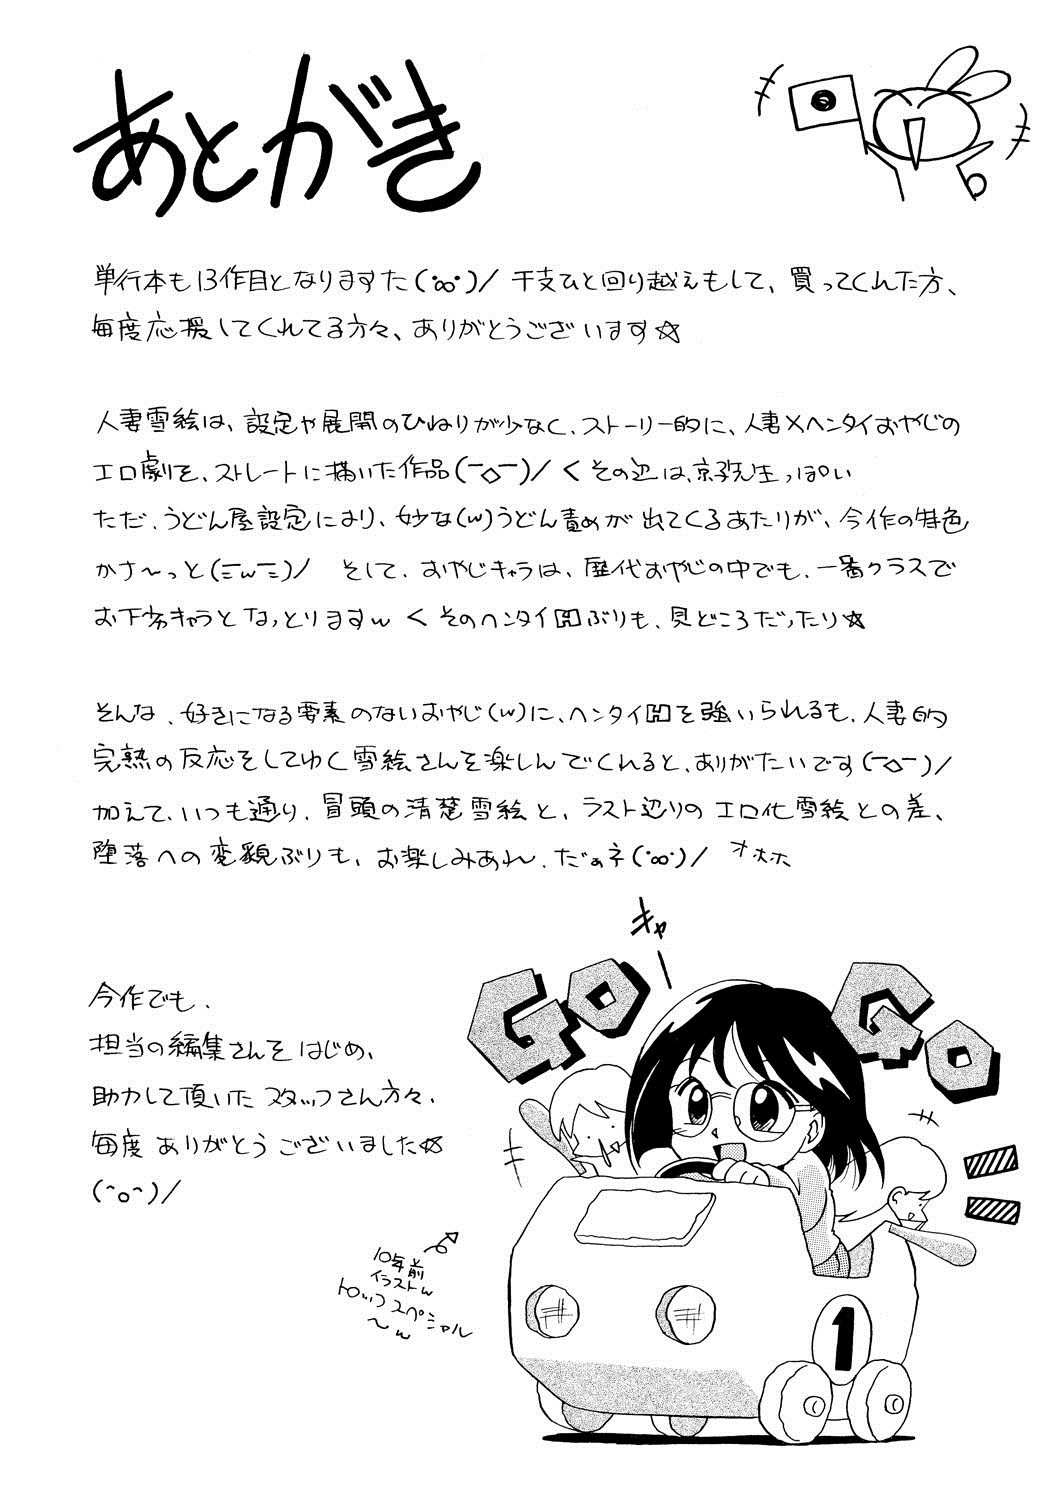 あとがき
単行本も13作目となりますた(･ｏｏ･)/ 干支ひと回り越えもして、買ってくれた方、
毎度応援してくれてる方々、ありがとうございます☆
人妻雪絵は、設定や展開のひねりが少なく、ストーリー的に、人妻×ヘンタイおやじの
エロ劇を、ストレートに描いた作品(￣◇￣)/ < その辺は、京子先生っぽい
ただ、うどん屋設定により、妙な(w)うどん責めが出てくるあたりが、今作の特色
かさ〜っと(ﾆwﾆ)/ そして、おやじキャラは、歴代おやじの中でも、一番クラスで
お下劣キャラとなっとりますw < そのヘンタイHぶりも、見どころだったり☆
そんな、好きになる要素のないおやじ(w)に、ヘンタイHを強いられるも、人妻的
完熟の反応をしてゆく雪絵さんを楽しんでくれると、ありがたいです(￣◇￣)/
加えて、いつも通り、冒頭の清楚雪絵と、ラスト辺りのエロ化雪絵との差、
堕落への変貌ぶりも、お楽しみあれ、だぁネ(･ｏｏ･)/ オホホ
今作でも、
担当の編集さんをはじめ、
助力して頂いたスタッフさん方々、
毎度ありがとうございました☆
(^o^)/
キャ
GO
GO
10年前
イラストw
トップスペシャル
〜w
1